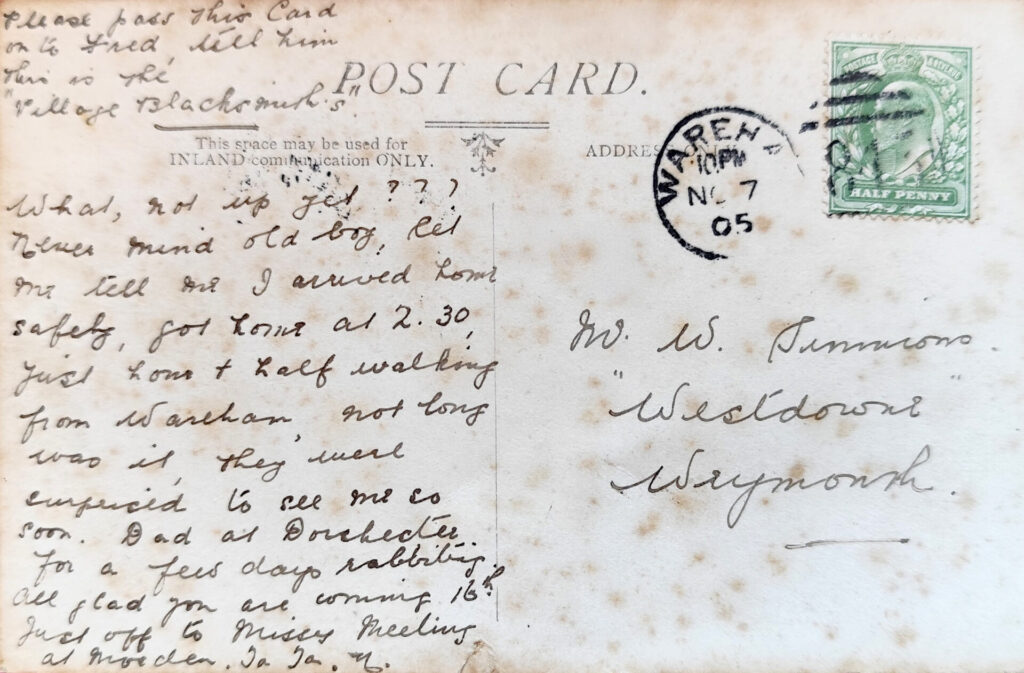 Please pass this Card
on to Fred, tell him
this is the
"Village Blacksmith's"
POST CARD.
This space may be used for
INLAND communication ONLY.
ADDRESS
WAREHA
10 PM
NO 7
05
POSTAGE REVENUE
HALF PENNY
What, not up yet ? ? ?
Never mind old boy, let
me tell me I arrived home
safely, got home at 2.30,
just hour + half walking
from Wareham, not long
was it, they were
surprised to see me so
soon. Dad at Dorchester
for a few days rabbiting.
All glad you are coming 16th
Just off to Missy Meeling
at Morden. Ta Ta.
Mr. W. Simmions.
"Westdowne"
Weymouth.